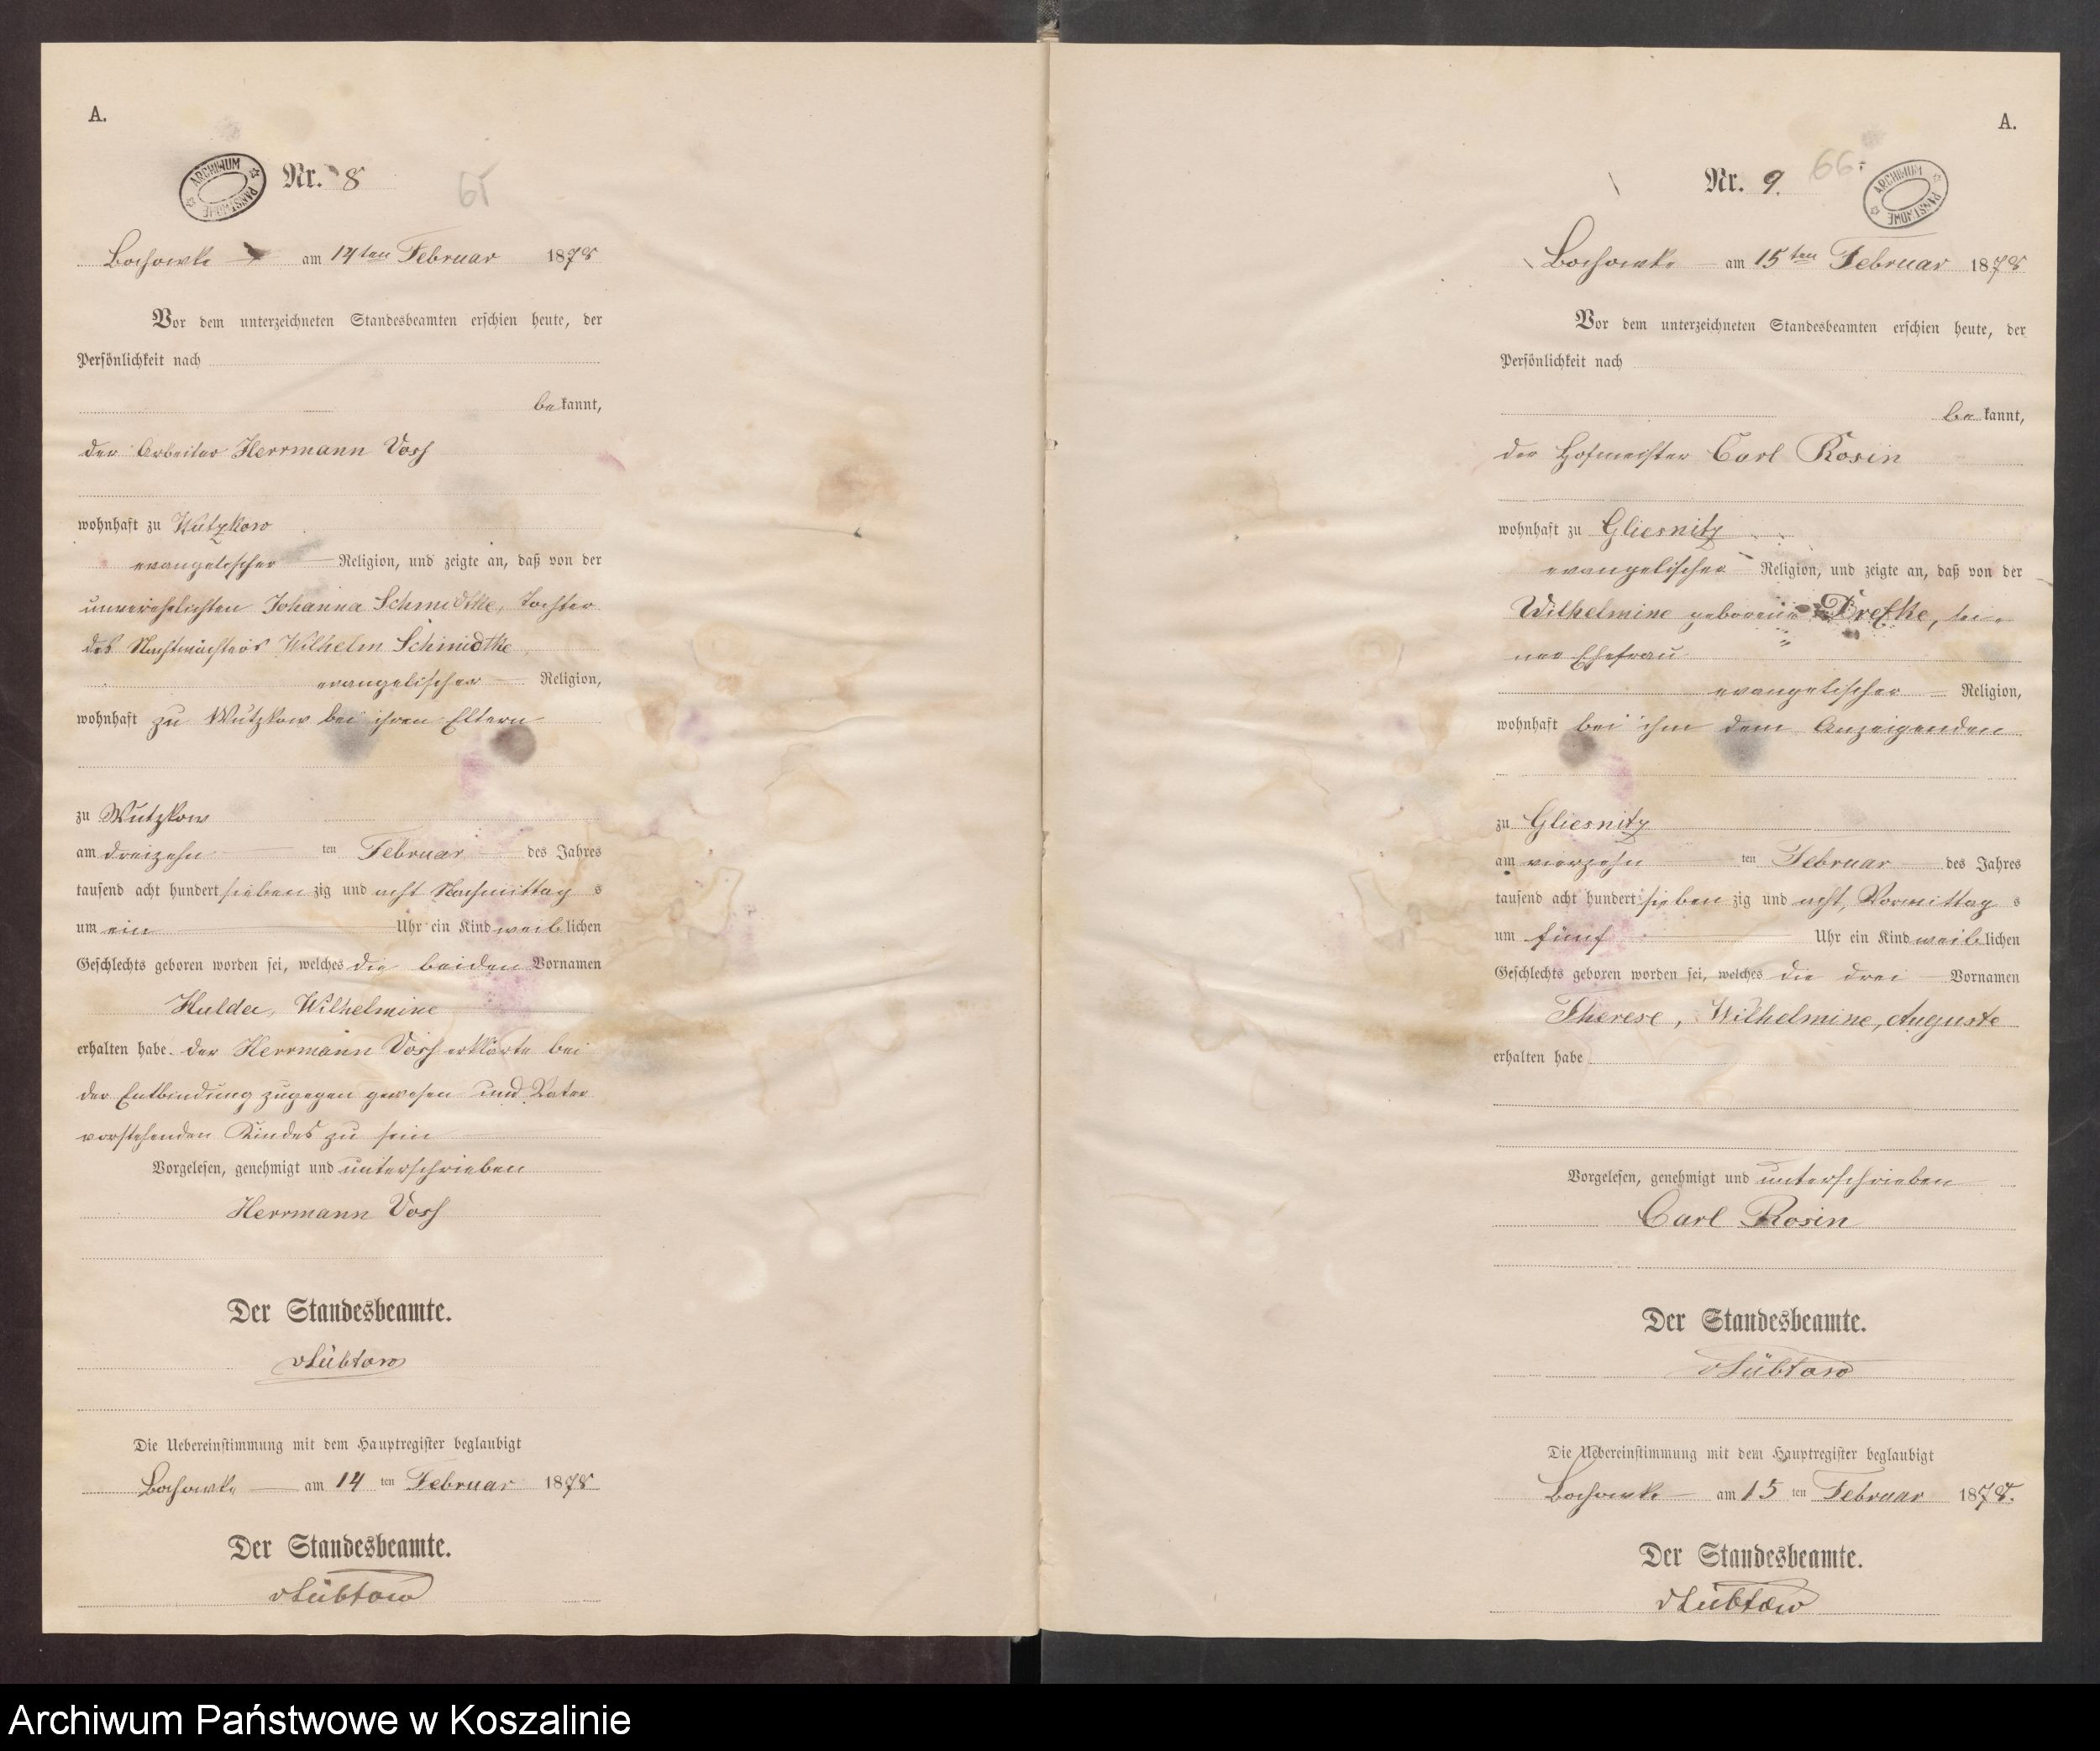 A.
ARCHIWUM PAŃSTWOWE
Nr. 8
65
Bochowke am 14ten Februar 1878
Vor dem unterzeichneten Standesbeamten erschien heute, der
Persönlichkeit nach
bekannt,
der Arbeiter Herrmann Voss
wohnhaft zu Wutzkow
evangelischer Religion, und zeigte an, daß von der
unverehelichten Johanna Schmidtke, Tochter
des Nachtwächters Wilhelm Schmidtke
evangelischer Religion,
wohnhaft zu Wutzkow bei ihren Eltern
zu Wutzkow
am dreizehn ten Februar des Jahres
tausend acht hundert siebenzig und acht Nachmittags
um ein Uhr ein Kind weiblichen
Geschlechts geboren worden sei, welches die beiden Vornamen
Hulda, Wilhelmine
erhalten habe. der Herrmann Voss erklärte bei
der Entbindung zugegen gewesen und Vater
vorstehenden Kindes zu sein
Vorgelesen, genehmigt und unterschrieben
Herrmann Voss
Der Standesbeamte.
vLübtow
Die Uebereinstimmung mit dem Hauptregister beglaubigt
Bochowke am 14 ten Februar 1878
Der Standesbeamte.
vLübtow
A.
Nr. 9.
66.
ARCHIWUM PAŃSTWOWE
Bochowke am 15ten Februar 1878
Vor dem unterzeichneten Standesbeamten erschien heute, der
Persönlichkeit nach
bekannt,
der Hofmeister Carl Rosin
wohnhaft zu Gliesnitz
evangelischer Religion, und zeigte an, daß von der
Wilhelmine geborene Drefke, sei-
ner Ehefrau
evangelischer Religion,
wohnhaft bei ihm dem Anzeigenden
zu Gliesnitz
am vierzehn ten Februar des Jahres
tausend acht hundert siebenzig und acht, Vormittags
um fünf Uhr ein Kind weiblichen
Geschlechts geboren worden sei, welches die drei Vornamen
Therese, Wilhelmine, Auguste
erhalten habe
Vorgelesen, genehmigt und unterschrieben
Carl Rosin
Der Standesbeamte.
vLübtow
Die Uebereinstimmung mit dem Hauptregister beglaubigt
Bochowke am 15 ten Februar 1878.
Der Standesbeamte.
vLübtow
Archiwum Państwowe w Koszalinie